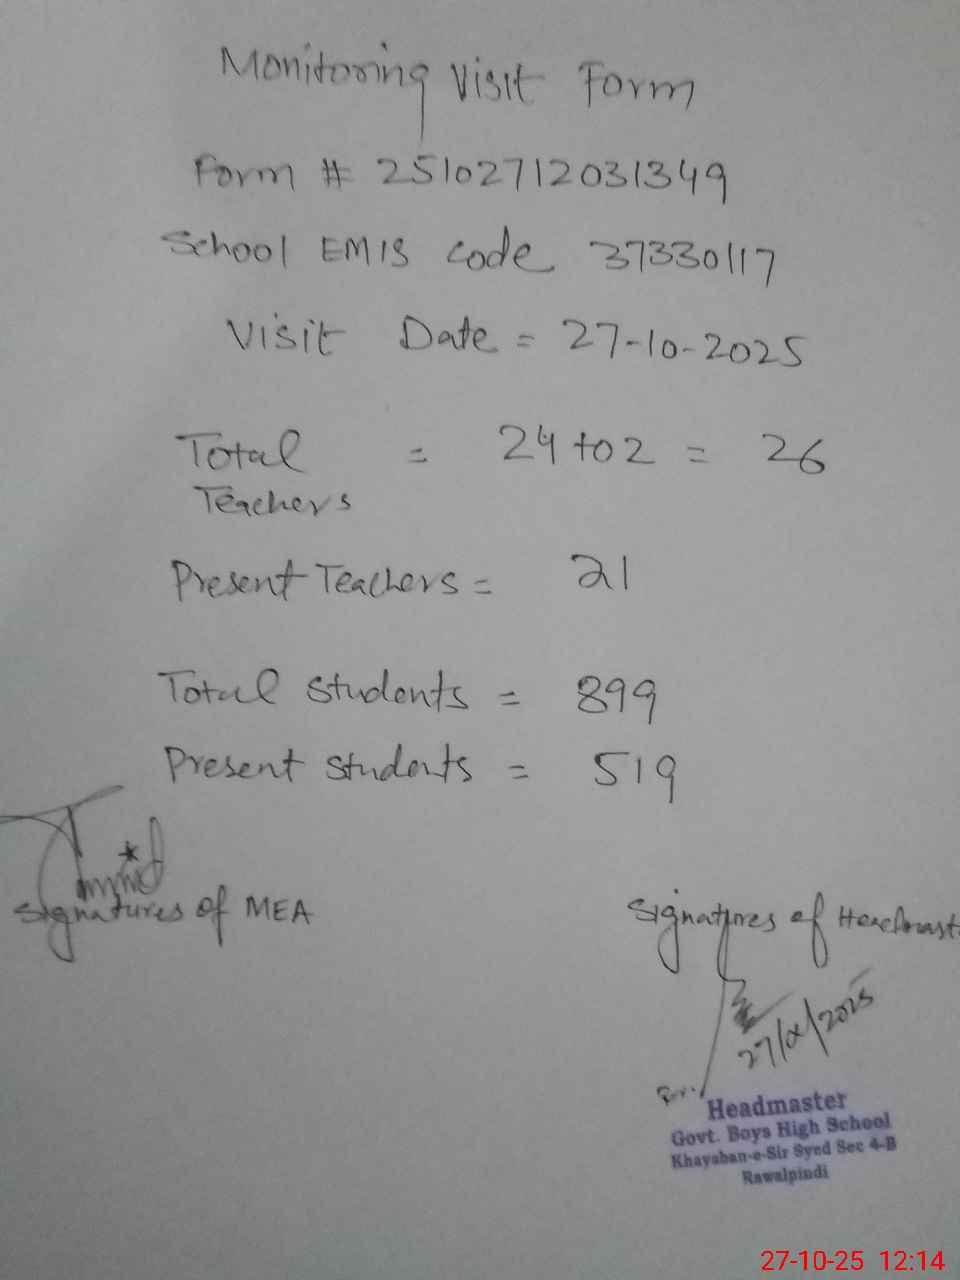 Monitoring Visit Form
Form # 25102712031349
School EMIS Code 37330117
Visit Date = 27-10-2025
Total = 24 to 2 = 26
Teachers
Present Teachers = 21
Total Students = 899
Present Students = 519
Signatures of MEA
Signatures of Headmast
27/10/2025
Headmaster
Govt. Boys High School
Khayaban-e-Sir Syed Sec 4-B
Rawalpindi
27-10-25 12:14